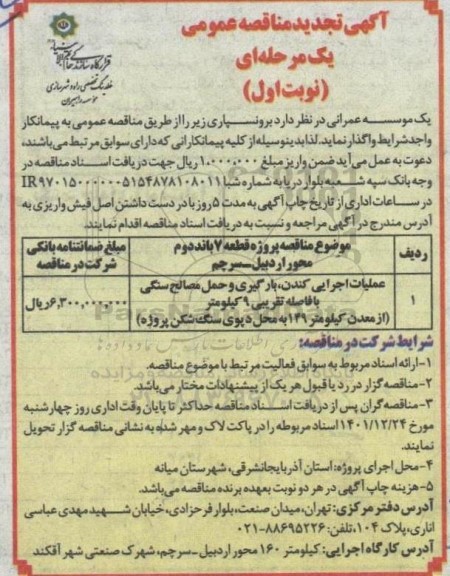 آگهی تجدید مناقصه عمومی
یک مرحله‌ای
(نوبت اول)
یک موسسه عمرانی در نظر دارد برونسپاری زیر را از طریق مناقصه عمومی به پیمانکار
واجد شرایط واگذار نماید. لذا بدینوسیله از کلیه پیمانکارانی که دارای سوابق مرتبط می‌باشند،
دعوت به عمل می‌آید ضمن واریز مبلغ ۱.۰۰۰.۰۰۰ ریال جهت دریافت اسناد مناقصه در
وجه بانک سپه شعبه بلوار دریا به شماره شبا IR۹۷۰۱۵۰۰۰۰۰۰۵۱۵۴۸۷۸۱۰۸۰۱۱
در ساعات اداری از تاریخ چاپ آگهی به مدت ۵ روز با در دست داشتن اصل فیش واریزی به
آدرس مندرج در آگهی مراجعه و نسبت به دریافت اسناد مناقصه اقدام نمایند.
ردیف موضوع مناقصه پروژه قطعه ۷ باند دوم محور اردبیل-سرچم مبلغ ضمانتنامه بانکی شرکت در مناقصه
۱ عملیات اجرایی کندن، بارگیری و حمل مصالح سنگی ۶,۳۰۰,۰۰۰,۰۰۰ ریال
با فاصله تقریبی ۹ کیلومتر
(از معدن کیلومتر ۱۴۹ به محل دپوی سنگ شکن پروژه)
شرایط شرکت در مناقصه:
۱-ارائه اسناد مربوط به سوابق فعالیت مرتبط با موضوع مناقصه.
۲-مناقصه گزار در رد یا قبول هر یک از پیشنهادات مختار می‌باشد.
۳-مناقصه گران پس از دریافت اسناد مناقصه حداکثر تا پایان وقت اداری روز چهارشنبه
مورخ ۱۴۰۱/۱۲/۲۴ اسناد مربوطه را در پاکت لاک و مهر شده به نشانی مناقصه گزار تحویل
نمایند.
۴-محل اجرای پروژه: استان آذربایجانشرقی، شهرستان میانه
۵-هزینه چاپ آگهی در هر دو نوبت بعهده برنده مناقصه می‌باشد.
آدرس دفتر مرکزی: تهران، میدان صنعت، بلوار فرحزادی، خیابان شهید مهدی عباسی
اناری، پلاک ۱۰۴، تلفن: ۸۸۶۹۵۲۲۶-۰۲۱
آدرس کارگاه اجرایی: کیلومتر ۱۶۰ محور اردبیل-سرچم، شهرک صنعتی شهر آقکند